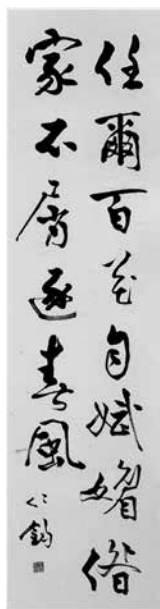 任爾百花自娬媚偺
家不屑逐春風
仁鈞